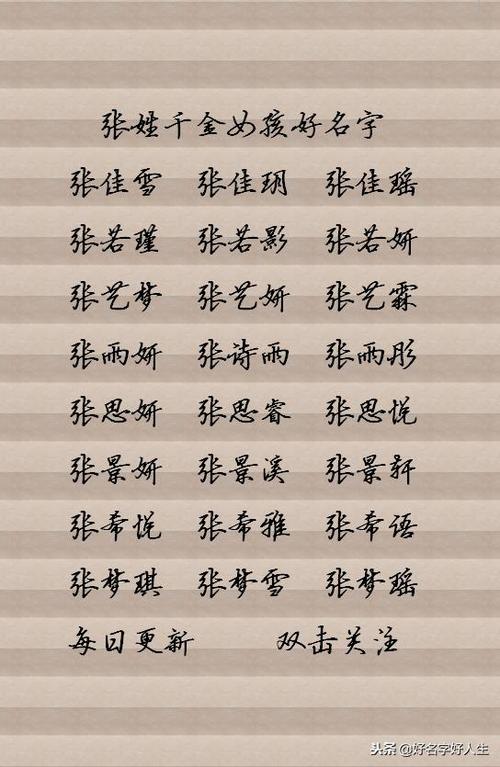 张姓千金女孩好名字
张佳雪 张佳玥 张佳瑶
张若瑾 张若影 张若妍
张艺梦 张艺妍 张艺霖
张雨妍 张诗雨 张雨彤
张思妍 张思睿 张思悦
张景妍 张景溪 张景轩
张希悦 张希雅 张希语
张梦琪 张梦雪 张梦瑶
每日更新 双击关注
头条 @好名字好人生